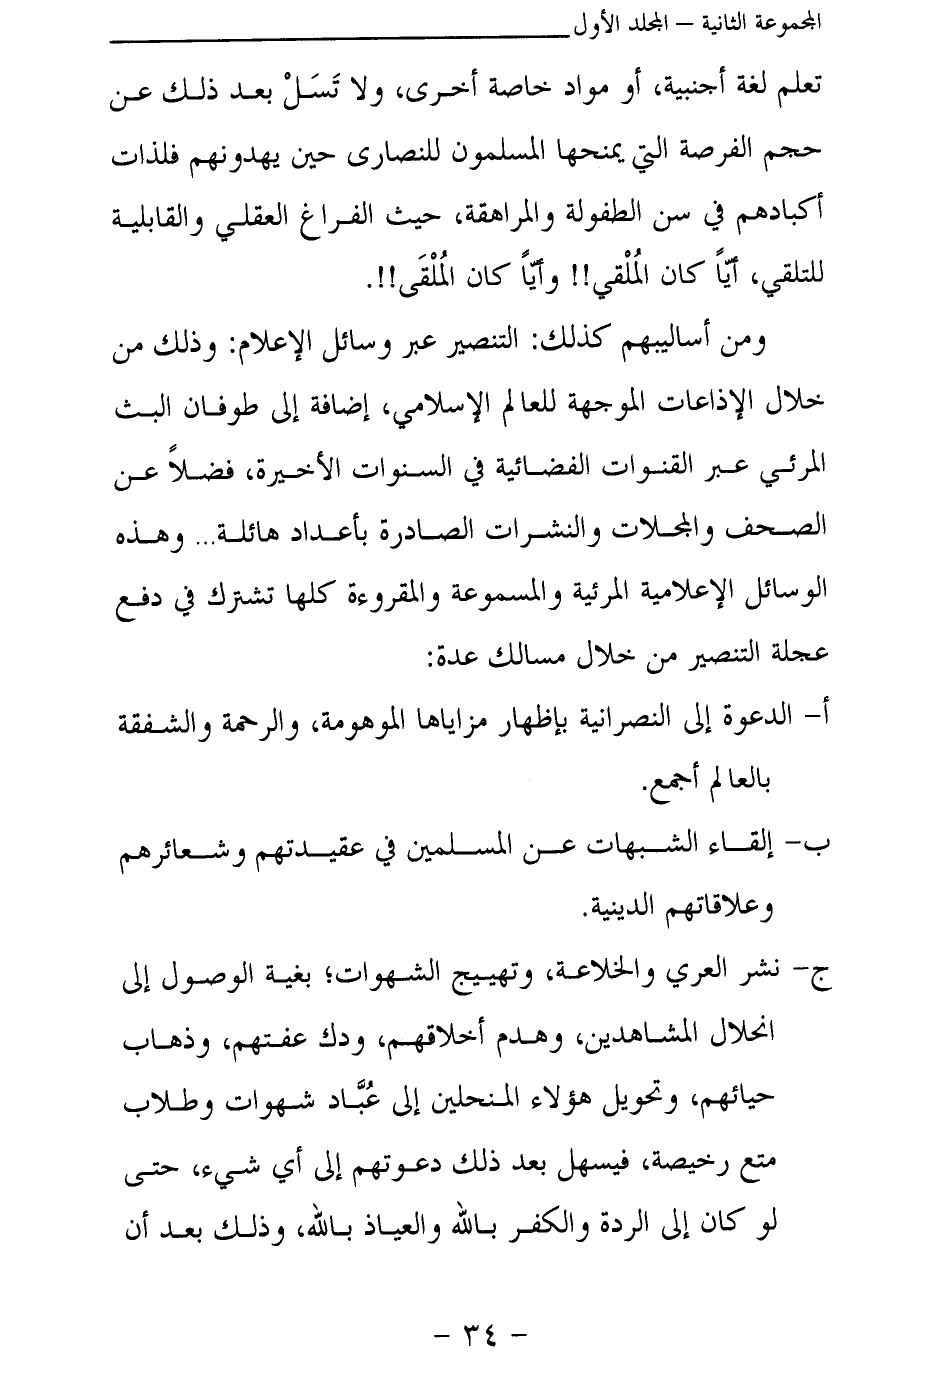 المجموعة الثانية – المجلد الأول
تعلم لغة أجنبية، أو مواد خاصة أخرى، ولا تَسَلْ بعد ذلك عن
حجم الفرصة التي يمنحها المسلمون للنصارى حين يهدونهم فلذات
أكبادهم في سن الطفولة والمراهقة، حيث الفراغ العقلي والقابلية
للتلقي، أيّاً كان المُلْقي!! وأيّاً كان المُلْقَى!!.
ومن أساليبهم كذلك: التنصير عبر وسائل الإعلام: وذلك من
خلال الإذاعات الموجهة للعالم الإسلامي، إضافة إلى طوفان البث
المرئي عبر القنوات الفضائية في السنوات الأخيرة، فضلاً عن
الصحف والمجلات والنشرات الصادرة بأعداد هائلة... وهذه
الوسائل الإعلامية المرئية والمسموعة والمقروءة كلها تشترك في دفع
عجلة التنصير من خلال مسالك عدة:
أ– الدعوة إلى النصرانية بإظهار مزاياها الموهومة، والرحمة والشفقة
بالعالم أجمع.
ب– إلقاء الشبهات عن المسلمين في عقيدتهم وشعائرهم
وعلاقاتهم الدينية.
ج– نشر العري والخلاعة، وتهييج الشهوات؛ بغية الوصول إلى
انحلال المشاهدين، وهدم أخلاقهم، ودك عفتهم، وذهاب
حيائهم، وتحويل هؤلاء المنحلين إلى عُبَّاد شهوات وطلاب
متع رخيصة، فيسهل بعد ذلك دعوتهم إلى أي شيء، حتى
لو كان إلى الردة والكفر بالله والعياذ بالله، وذلك بعد أن
– ٣٤ –